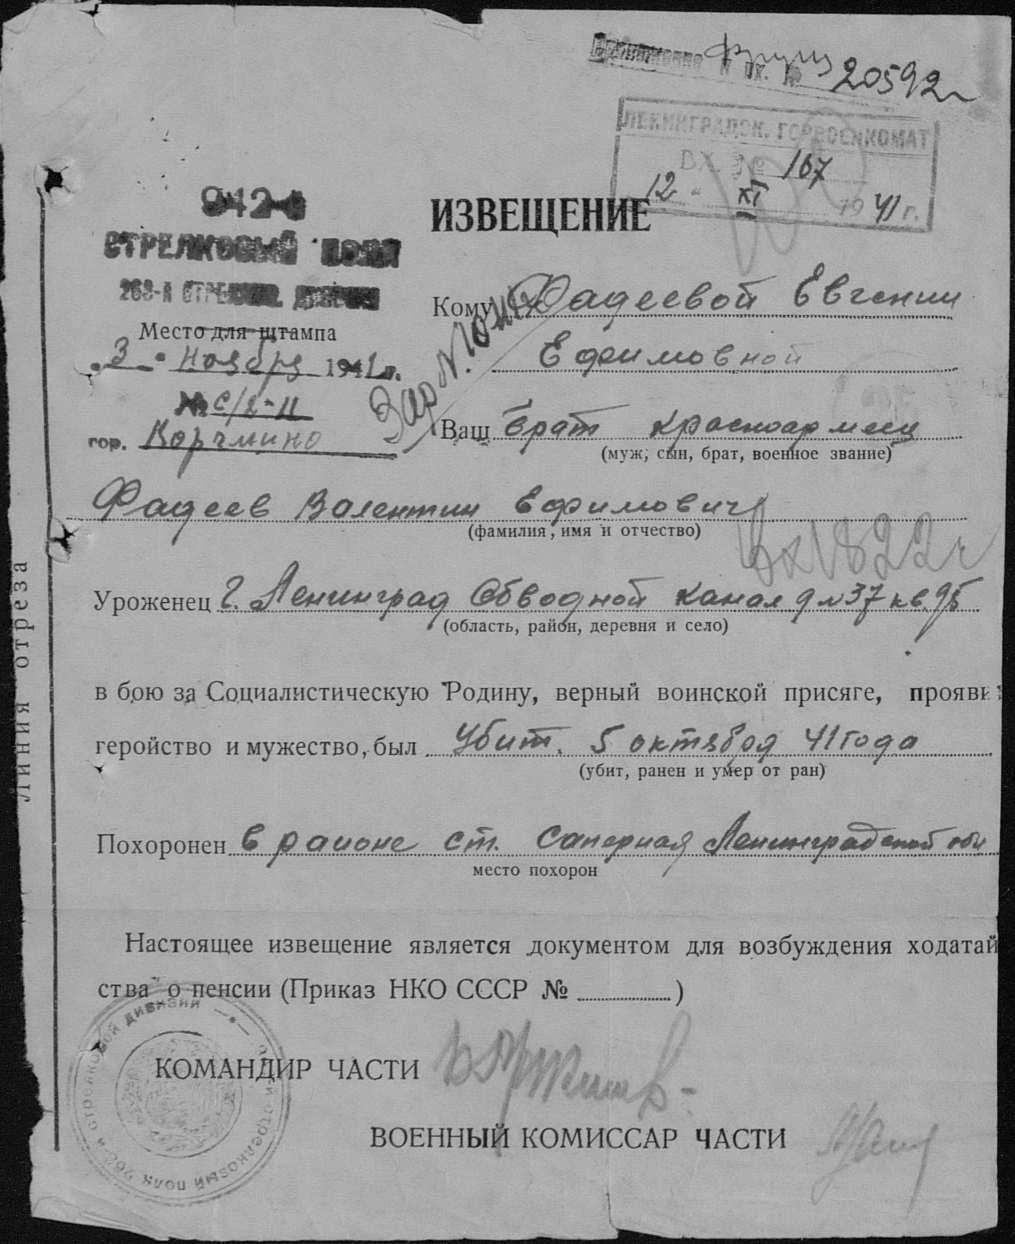 вх. № 20592
ЛЕНИНГРАДСК. ГОРВОЕНКОМАТ
ВХ. № 167
12 " XI 1941 г.
942-й
СТРЕЛКОВЫЙ ПОЛК
268-я СТРЕЛКОВ. ДИВИЗИИ
Место для штампа
"3" ноября 1941 г.
№ с/2-11
гор. Корчмино
ИЗВЕЩЕНИЕ
Кому Фадеевой Евгении
Ефимовной
Ваш брат красноармеец
(муж, сын, брат, военное звание)
Фадеев Валентин Ефимович
(фамилия, имя и отчество)
Вх 1822
Уроженец г. Ленинград Обводной канал д № 37 кв. 95
(область, район, деревня и село)
в бою за Социалистическую Родину, верный воинской присяге, прояви
геройство и мужество, был убит. 5 октября 41 года
(убит, ранен и умер от ран)
Похоронен в районе ст. Саперная Ленинградской обл
место похорон
Настоящее извещение является документом для возбуждения ходатай
ства о пенсии (Приказ НКО СССР № )
КОМАНДИР ЧАСТИ
ВОЕННЫЙ КОМИССАР ЧАСТИ
Линия отреза
стрелковой дивизии
стрелковый полк 268-й